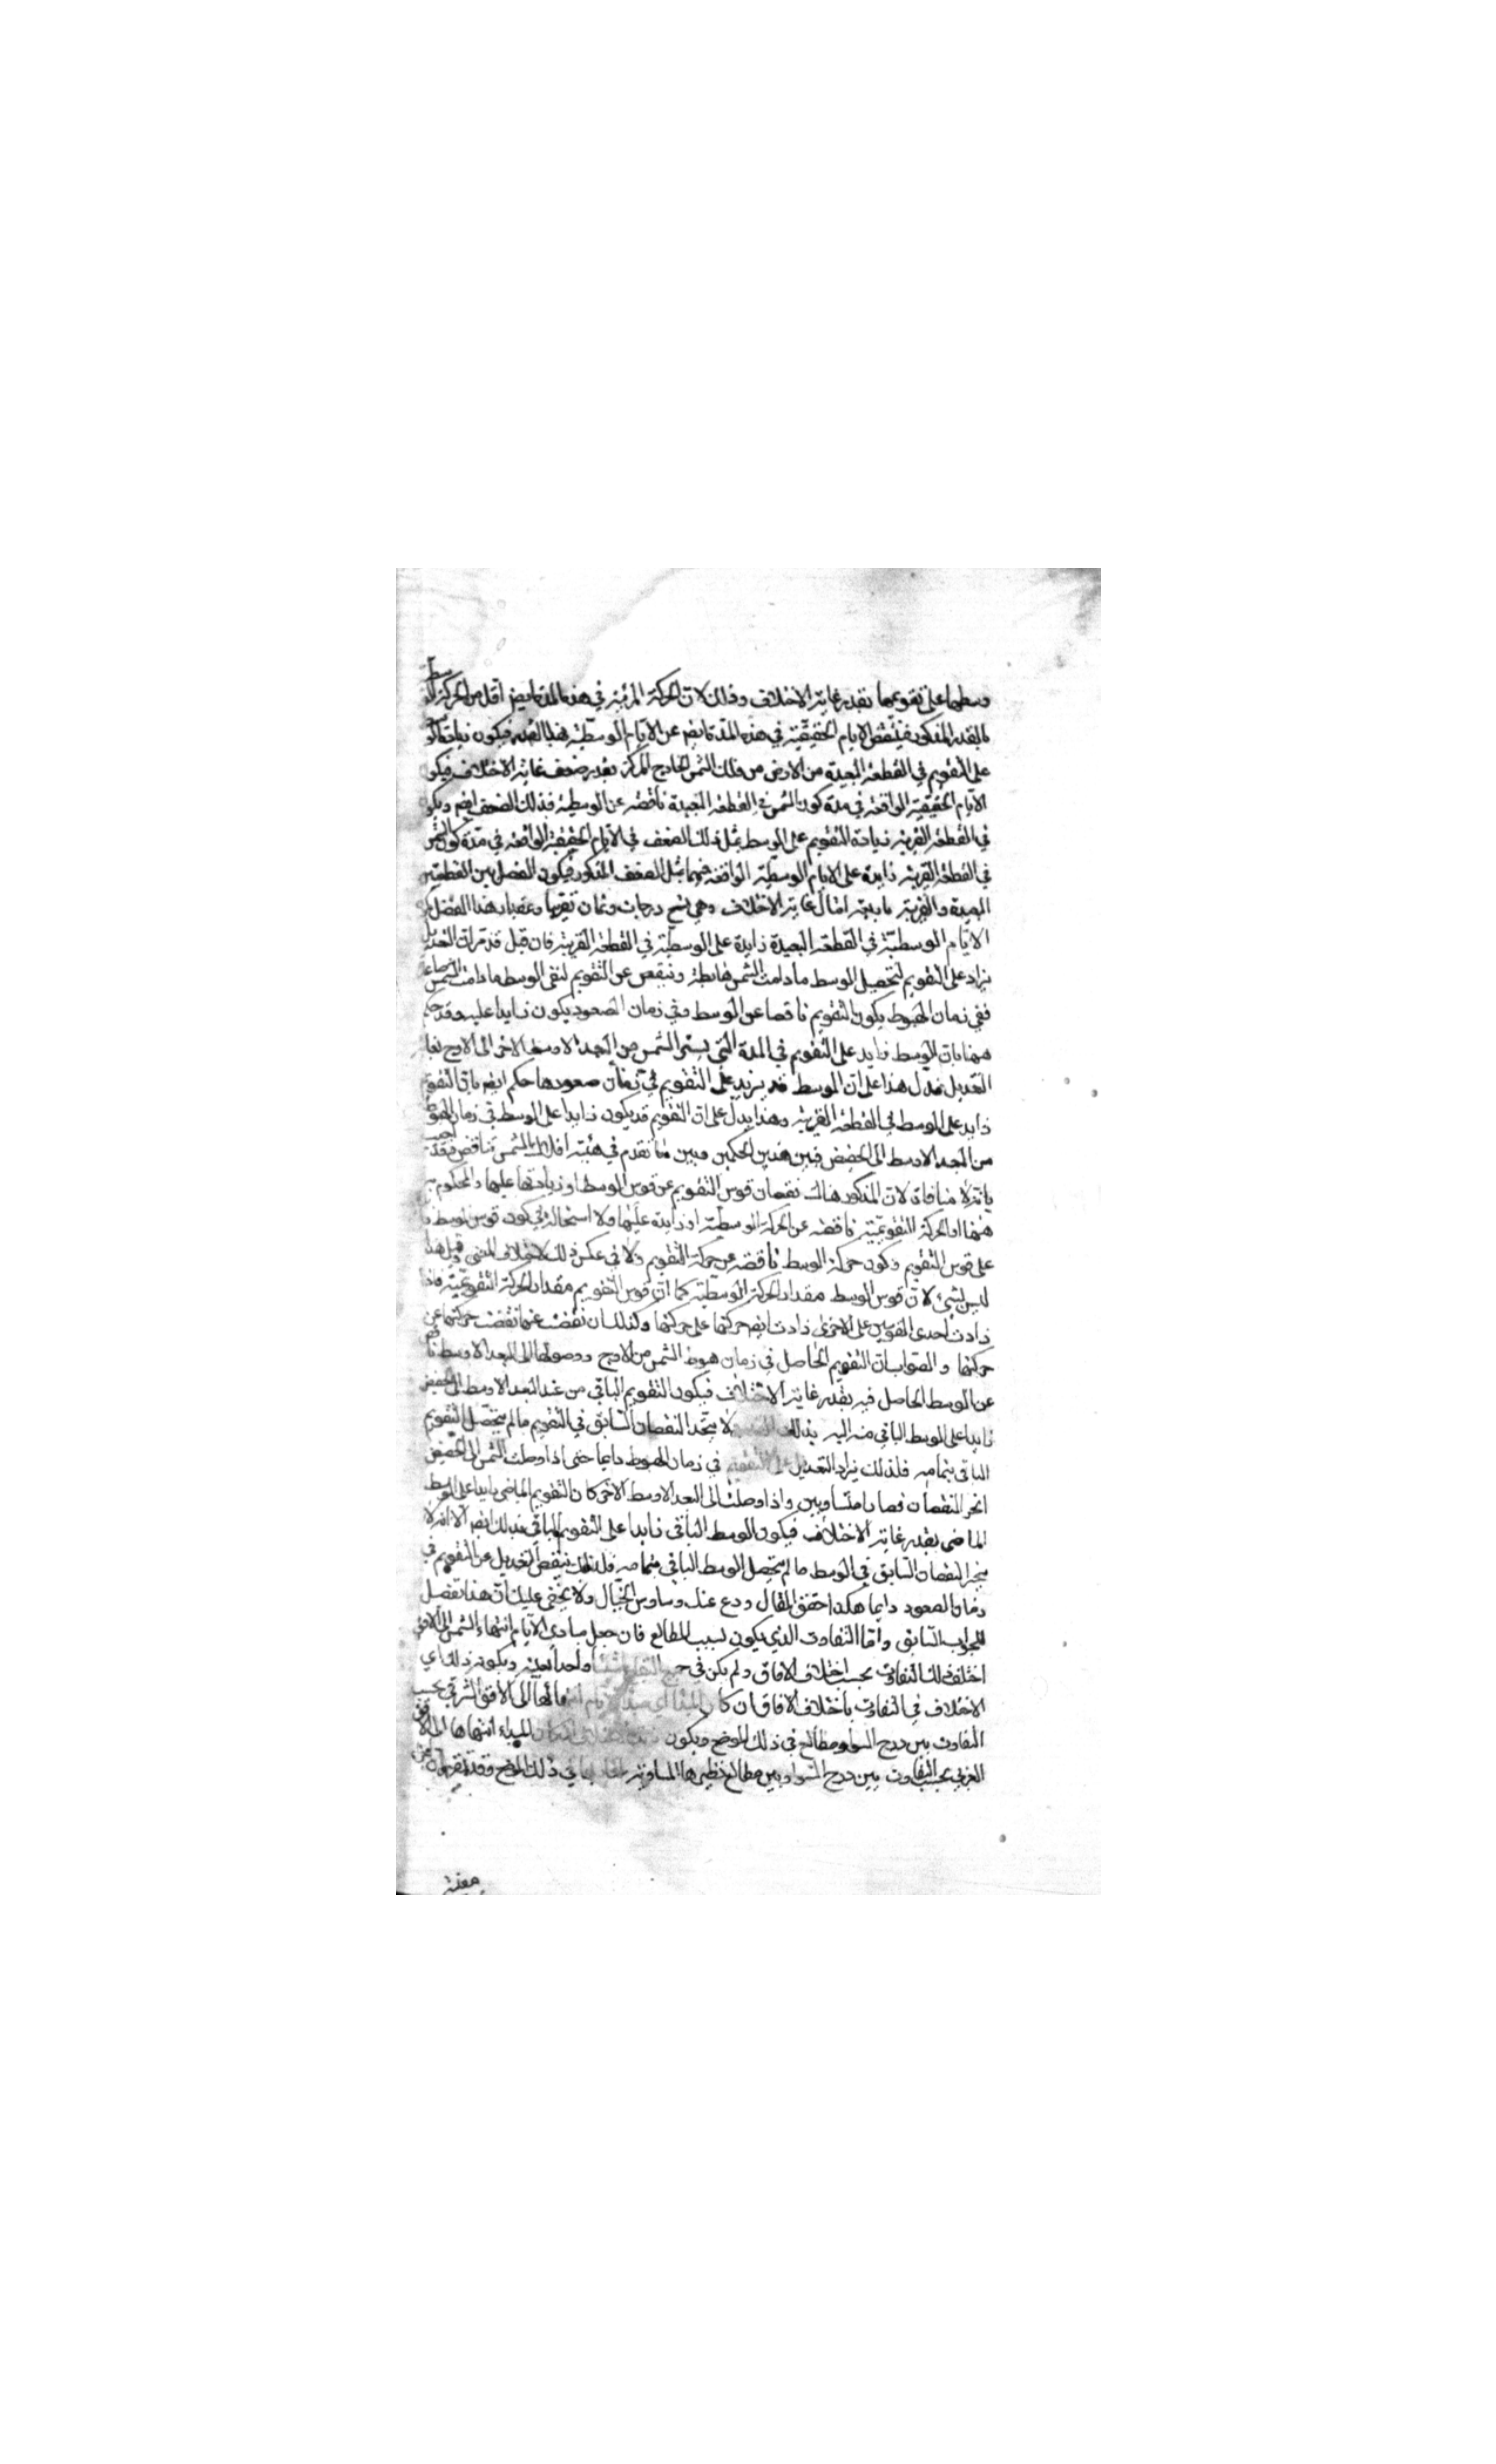 وسطها على تقويمها بقدر غاية الاختلاف وذلك لان الحركة المرئية في هذه المدة ايضا اقل من الحركة الوسطية
بالقدر المذكور فينقص الايام الحقيقية في هذه المدة ايضا عن الايام الوسطية بهذا القدر فيكون زيادة الوسط
على التقويم في القطعة البعيدة من الارض من فلك الشمس الخارج المركز بقدر ضعف غاية الاختلاف فيكون
الايام الحقيقية الواقعة في مدة كون الشمس في القطعة البعيدة ناقصة عن الوسطية بذلك الضعف ايضا ويكون
في القطعة القريبة زيادة التقويم على الوسط بمثل ذلك الضعف في الايام الحقيقية الواقعة في مدة كون الشمس
في القطعة القريبة زايدة على الايام الوسطية الواقعة فيها بمثل الضعف المذكور فيكون الفضل بين القطعتين
البعيدة والقريبة باربعة امثال غاية الاختلاف وهي تسع درجات وثمان تقريبا وبمقدار هذا الفضل يكون
الايام الوسطية في القطعة البعيدة زايدة على الوسطية في القطعة القريبة فان قيل قد مر ان التعديل
يزاد على التقويم لتحصيل الوسط ما دامت الشمس هابطة وينقص عن التقويم لبقى الوسط ما دامت الشمس صاعدة
ففي زمان الهبوط يكون التقويم ناقصا عن الوسط وفي زمان الصعود يكون زايدا عليه وقد حكم
ههنا بان الوسط زايد على التقويم في المدة التي يسير الشمس من البعد الاوسط الاخر الى الاوج بغاية
التعديل فدل هذا على ان الوسط قد يزيد على التقويم في زمان صعودها حكم ايضا بان التقويم
زايد على الوسط في القطعة القريبة وهذا يدل على ان التقويم قد يكون زايدا على الوسط في زمان الهبوط
من البعد الاوسط الى الحضيض فبين هذين الحكمين وبين ما تقدم في هيئة افلاك الشمس تناقض وقد اجيب
بانه لا منافاة لان المذكور هناك نقصان قوس التقويم عن قوس الوسط او زيادتها عليها والمحكوم به
ههنا ان الحركة التقويمية ناقصة عن الحركة الوسطية او زايدة عليها ولا استحالة في كون قوس الوسط زايدا
على قوس التقويم وكون حركة الوسط ناقصة عن حركة التقويم ولا في عكس ذلك لاختلاف المعنى وقيل هذا
ليس بشيء لان قوس الوسط مقدار الحركة الوسطية كما ان قوس التقويم مقدار الحركة التقويمية فاذا
زادت احدى القوسين على الاخرى زادت ايضا حركتها على حركتها وكذلك ان نقصت عنها نقصت حركتها عن
حركتها والصواب ان التقويم الحاصل في زمان هبوط الشمس من الاوج ووصولها الى البعد الاوسط ناقص
عن الوسط الحاصل فيه بقدر غاية الاختلاف فيكون التقويم الباقي من عند البعد الاوسط الى الحضيض
زايدا على الوسط الباقي منه اليه بذلك لا ينجبر النقصان السابق في التقويم ما لم يتحصل التقويم
الباقي بتمامه فلذلك يزاد التعديل على التقويم في زمان الهبوط دايما حتى اذا وصلت الشمس الى الحضيض
انجبر النقصان فصارا متساويين واذا وصلت الى البعد الاوسط الاخر كان التقويم الماضي زايدا على الوسط
الماضي بقدر غاية الاختلاف فيكون الوسط الباقي زايدا على التقويم الباقي بذلك ايضا الا انه لا
ينجبر النقصان السابق في الوسط ما لم يتحصل الوسط الباقي بتمامه فلذلك ينقص التعديل عن التقويم في
زمان الصعود دايما هكذا حقق المقال ودع عنك وساوس الخيال ولا يخفى عليك ان هذا تفصيل
للجواب السابق واما التفاوت الذي يكون بسبب المطالع فان جعل مبادي الايام انتهاء الشمس الى الافق
اختلف ذلك التفاوت بحسب اختلاف الافاق ولم يكن في جميع البقاع شيئا واحدا بعينه ويكون ذلك اي
الاختلاف في التفاوت باختلاف الافاق ان كان المبدأ اي مبدأ الايام انتهائها الى الافق الشرقي بحسب
التفاوت بين درج السواء ومطالع في ذلك الموضع ويكون المبداء انتهاءها الى الافق
الغربي بحسب التفاوت بين درج السواء وبين مطالع نظيرها المساوية في ذلك الموضع وقد تقرر ان
مغنية